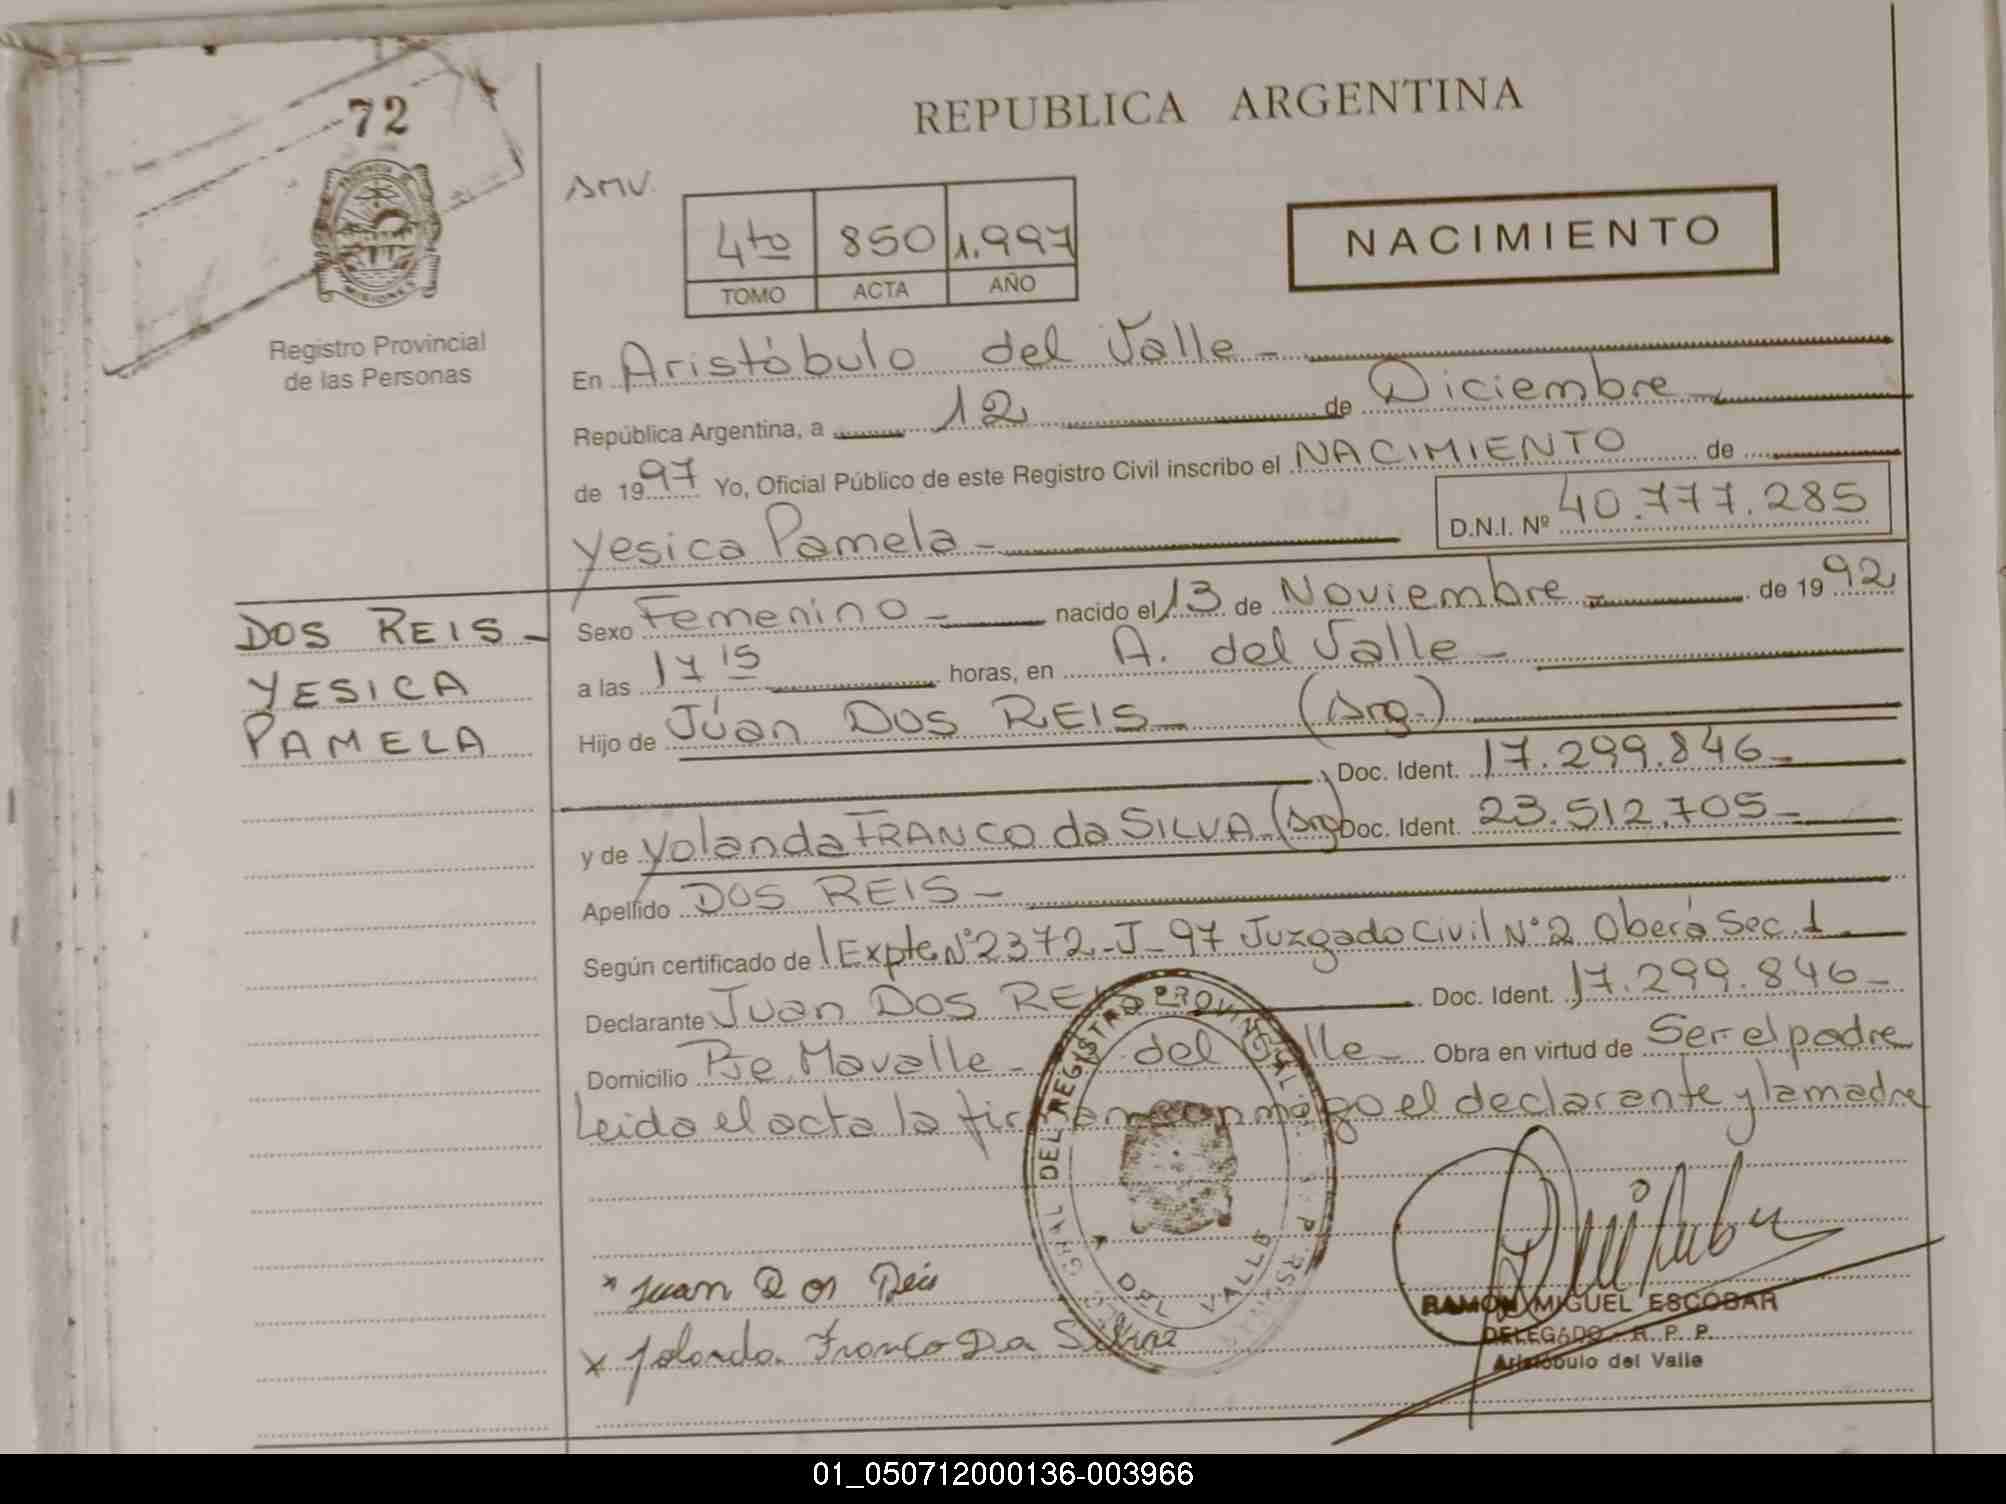 72
PROVINCIA
MISIONES
Registro Provincial
de las Personas
REPUBLICA ARGENTINA
SMV.
4to 850 1.997
TOMO ACTA AÑO
NACIMIENTO
En Aristóbulo del Valle
República Argentina, a 12 de Diciembre
de 1997 Yo, Oficial Público de este Registro Civil inscribo el NACIMIENTO de
Yesica Pamela D.N.I. Nº 40.777.285
DOS REIS
YESICA
PAMELA
Sexo Femenino nacido el 13 de Noviembre de 1992
a las 17 15 horas, en A. del Valle
Hijo de Júan DOS REIS (Arg.)
Doc. Ident. 17.299.846
y de Yolanda FRANCO da SILVA (Arg) Doc. Ident. 23.512.705
Apellido DOS REIS
Según certificado de Expte Nº 2372-J-97 Juzgado Civil Nº 2 Oberá Sec. 1
Declarante Juan DOS REIS Doc. Ident. 17.299.846
Domicilio Pje Mavalle del Valle Obra en virtud de Ser el padre
Leida el acta la firman conmigo el declarante y la madre
DEL REGISTRO PROVINCIAL
DEL VALLE
x Juan Dos Reis
x Yolanda Franco Da Silva
RAMON MIGUEL ESCOBAR
DELEGADO R. P. P.
Aristóbulo del Valle
01_050712000136-003966